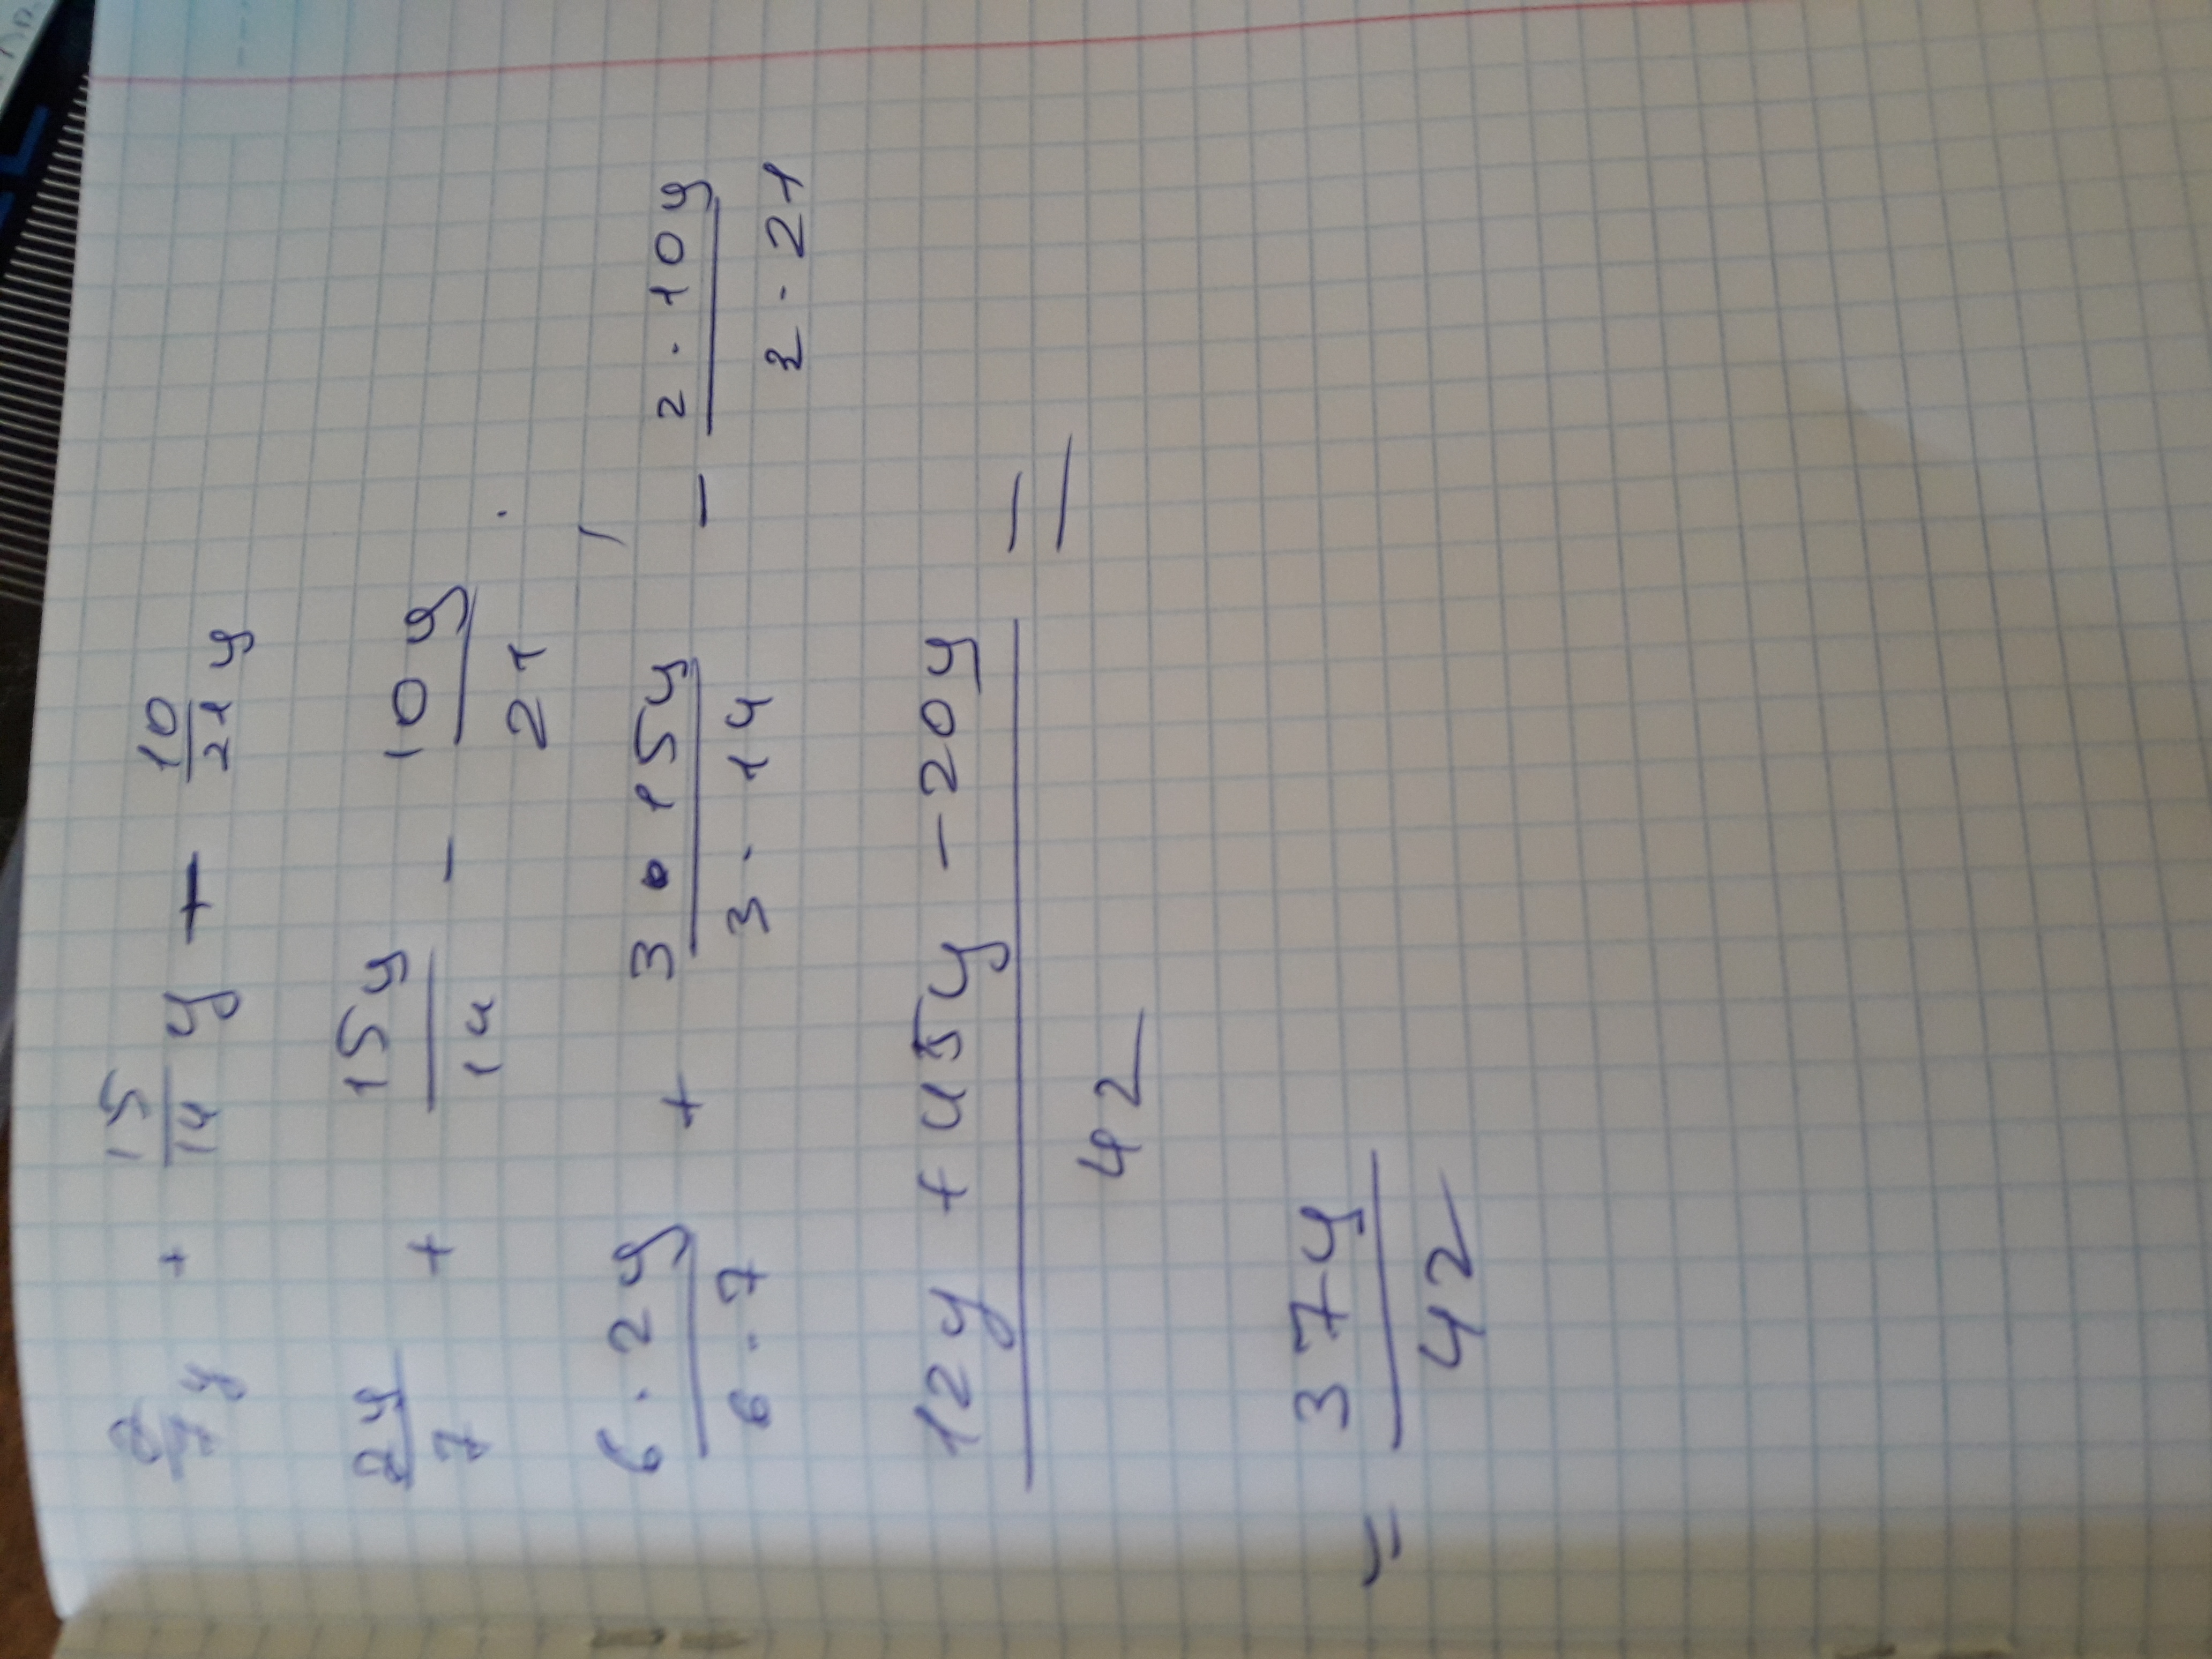 2/7 y + 15/14 y - 10/21 y
2y/7 + 15y/14 - 10y/21
6·2y/6·7 + 3·15y/3·14 - 2·10y/2·21
12y + 45y - 20y/42 =
= 37y/42